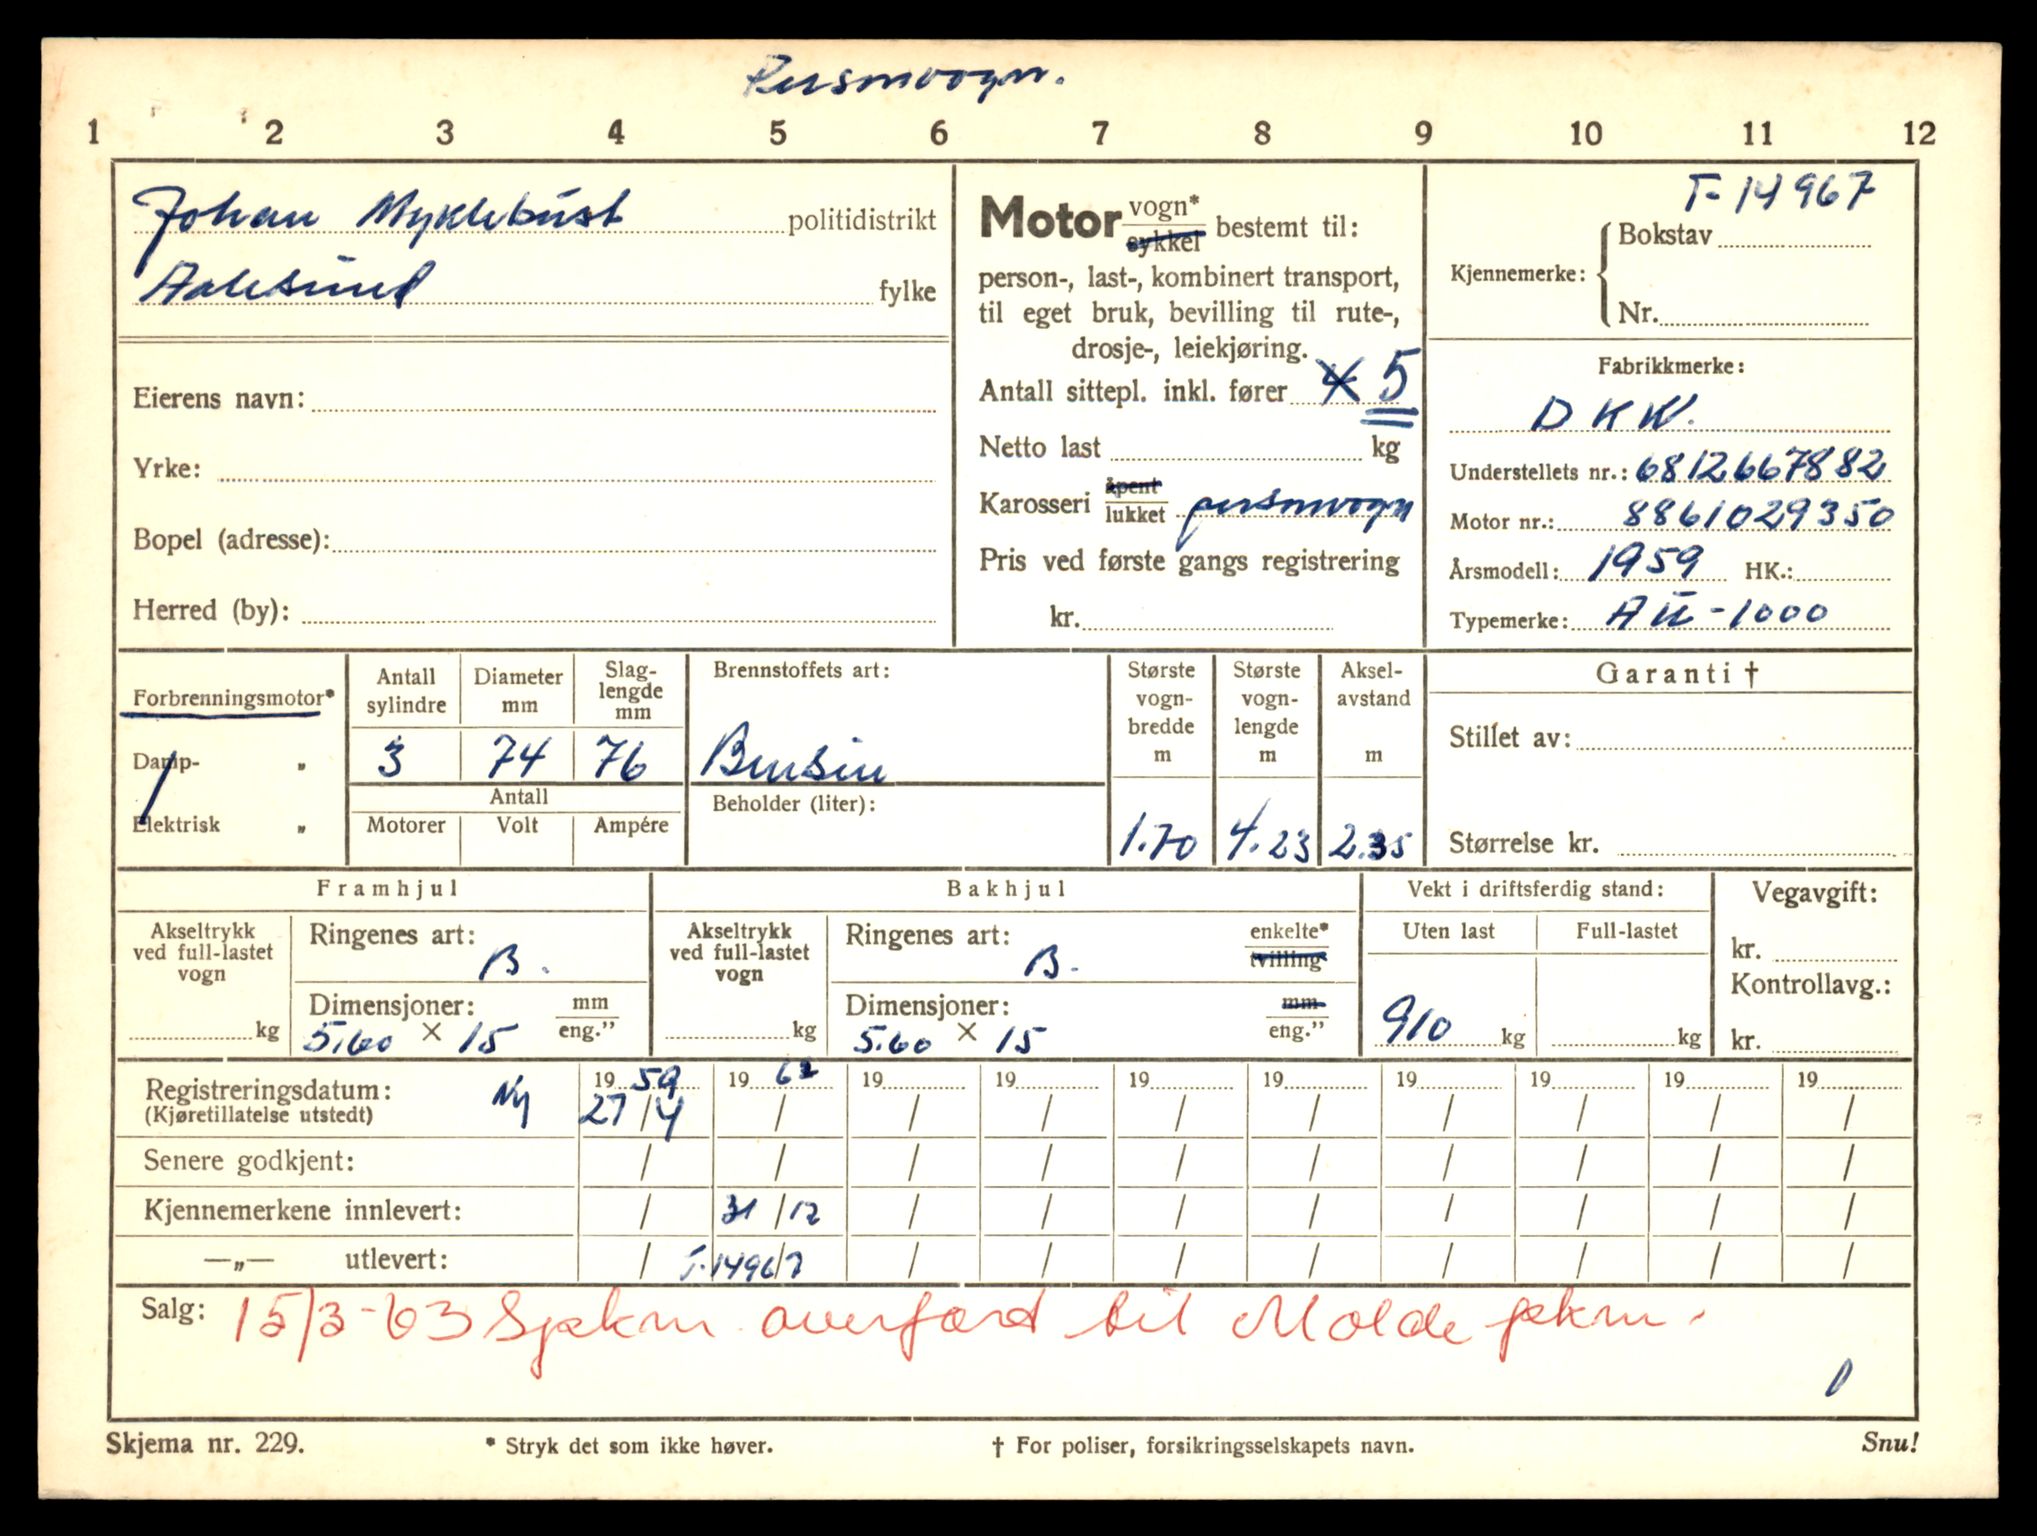 Personvogn.
1 2 3 4 5 6 7 8 9 10 11 12
Johan Myklebust politidistrikt
Aalesund fylke
Eierens navn:
Yrke:
Bopel (adresse):
Herred (by):
Motor vogn* sykkel bestemt til:
person-, last-, kombinert transport,
til eget bruk, bevilling til rute-,
drosje-, leiekjøring.
Antall sittepl. inkl. fører 4 5
Netto last kg
Karosseri åpent lukket personvogn
Pris ved første gangs registrering
kr.
T-14967
Kjennemerke: Bokstav
Nr.
Fabrikkmerke:
DKW.
Understellets nr.: 6812667882
Motor nr.: 8861029350
Årsmodell: 1959 HK.:
Typemerke: AU-1000
Forbrenningsmotor*
Damp- „
Elektrisk „
Antall sylindre
Diameter mm
Slag-lengde mm
3 74 76
Antall
Motorer Volt Ampére
Brennstoffets art:
Bensin
Beholder (liter):
Største vogn-bredde m
1.70
Største vogn-lengde m
4.23
Aksel-avstand m
2.35
Garanti †
Stillet av:
Størrelse kr.
Framhjul
Akseltrykk ved full-lastet vogn
kg
Ringenes art:
B.
Dimensjoner: mm
5.60 × 15 eng.”
Bakhjul
Akseltrykk ved full-lastet vogn
kg
Ringenes art: enkelte*
B. tvilling*
Dimensjoner: mm
5.60 × 15 eng.”
Vekt i driftsferdig stand:
Uten last Full-lastet
910 kg kg
Vegavgift:
kr.
Kontrollavg.:
kr.
Registreringsdatum: Ny 19 59 19 62 19 19 19 19 19 19 19 19
(Kjøretillatelse utstedt) 27/4 / / / / / / / / /
Senere godkjent: / / / / / / / / / /
Kjennemerkene innlevert: / 31/12 / / / / / / / /
—„— utlevert: / T-14967 / / / / / / / /
Salg: 15/3-63 Sjekm overført til Molde
Skjema nr. 229.
* Stryk det som ikke høver.
† For poliser, forsikringsselskapets navn.
Snu!